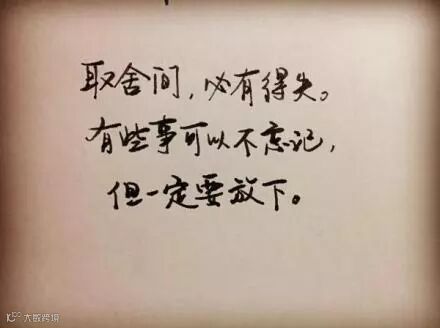 取舍间，必有得失。
有些事可以不忘记，
但一定要放下。
大数跨境